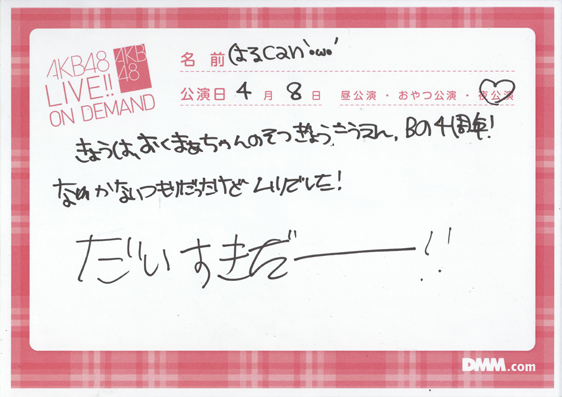 AKB48
LIVE!!
ON DEMAND
AKB
48
名前 はるcan'ω'
公演日 4月8日 昼公演・おやつ公演・夜公演
きょうは、おくまぁちゃんのそつぎょうこうえん、Bの4周年!
なかないつもりだったけど ムリでした!
だいすきだー!!
DMM.com